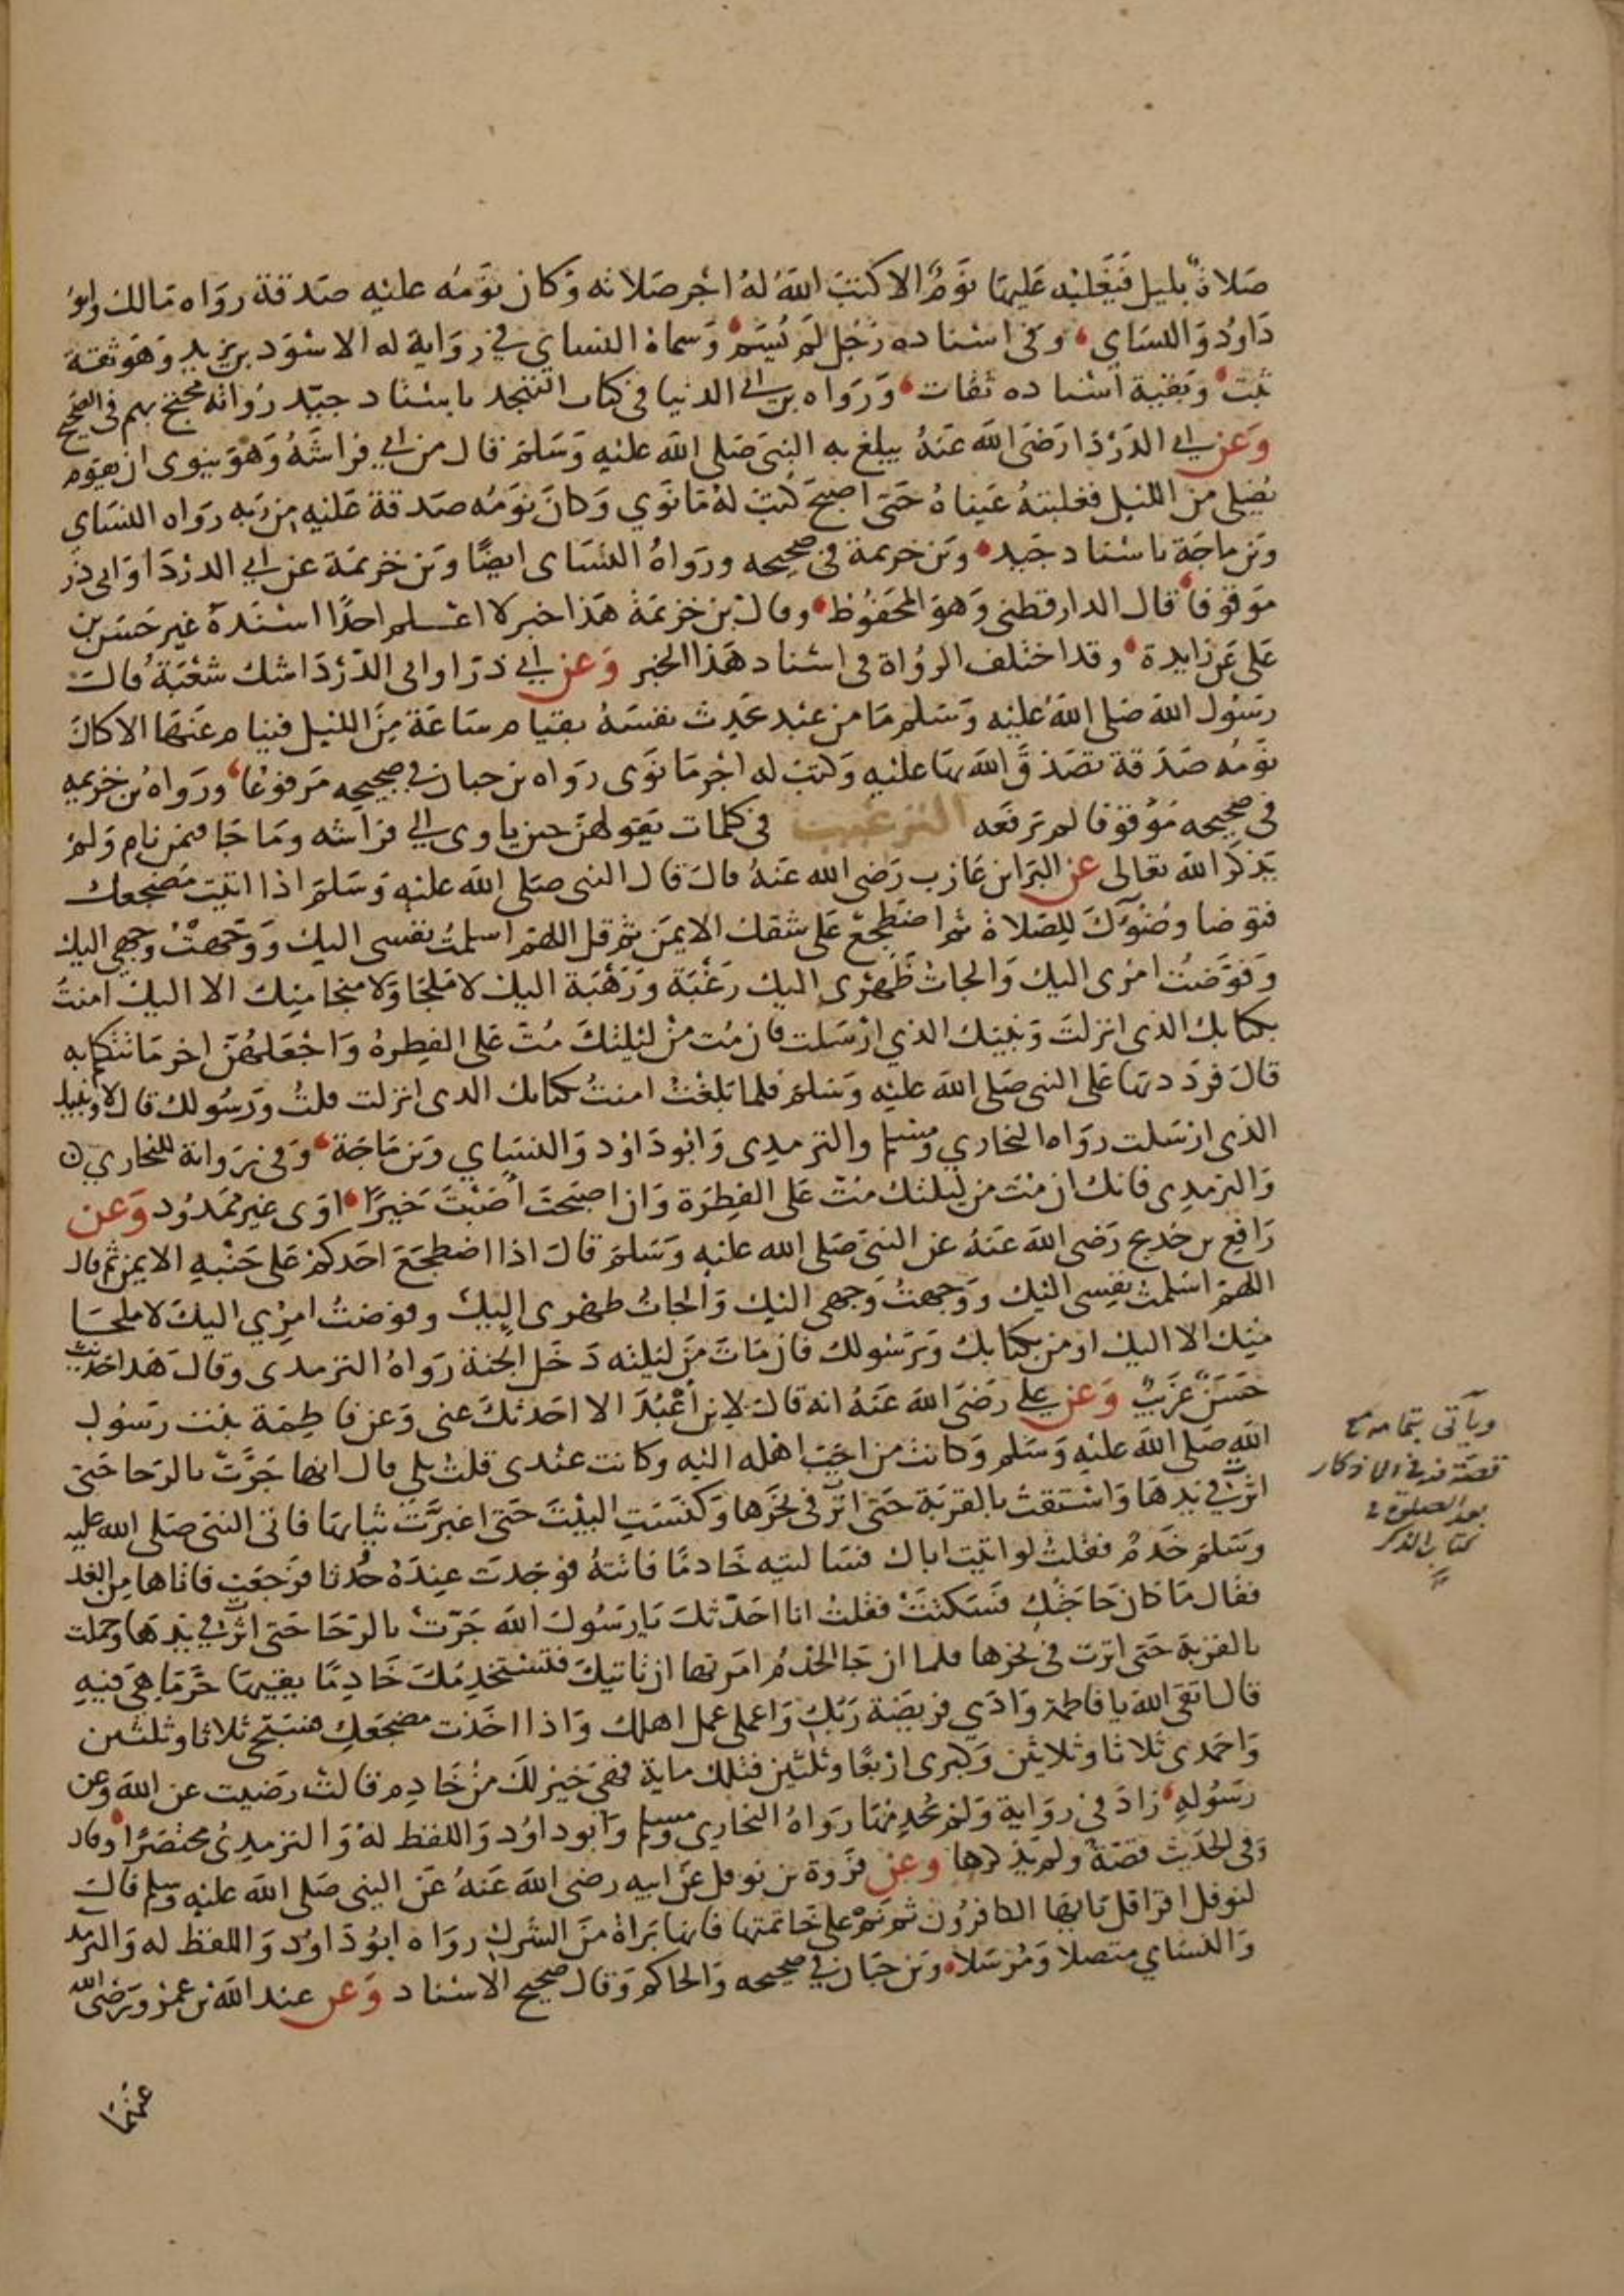 صَلاةٌ بليل فَيَغلبُه عَليها نَومٌ الا كتبَ اللهُ لهُ اجر صَلاته وَكان نَومُه عليه صَدقة رواه مَالك وابو
دَاود وَالنسَاي وفى اسْناده رَجُل لَم يُسَم وَسماهُ النسَاي في رِوَاية له الاسْوَد بن يزيد وَهوَ ثقة
ثبت وبَقية اسْناده ثقات وَرَوَاه بن ابي الدنيا فى كتاب التهجد باسْناد جيّد رُواته محتج بهم فى الصحيح
وَعن ابي الدَرْدَا رَضيَ اللهَ عَنهُ يبلغ به النبيَ صَلى الله عليْهِ وَسَلمَ قال من اتي فراشَهُ وَهوَ ينوى ان يقوم
يُصَلى من الليْل فغلبتهُ عَيناهُ حَتى اصبحَ كُتبَ لهُ مَا نوَي وَكانَ نَومُه صَدقة عَليْه مِن رَبه رَواه النسَاي
وَبن مَاجَة باسْناد جَيد وَبن خزيمة في صحيحه ورَواهُ النسَاى ايضًا وَبن خزيمَة عن ابي الدرْدَا وَابى ذر
مَوقوفا قال الدارقطنى وَهوَ المحَفوُظ وقال بن خزيمَة هَذا خبر لا اعْلم احدًا اسْنَدهُ غير حَسَن بن
عَلى عَن زَايدة وقد اختلف الروُاة فى اسْناد هَذا الخبر وَعن ابي ذرّ او ابى الدّرْدَا شك شعْبَة قالَ
رسُول الله صَلى اللهُ عَليْه وَسَلم مَا من عبْد يحدث نفسَهُ بقيام سَاعَة مِنَ الليْل فينام عَنهَا الا كانَ
نَومُه صَدَقة تصَدقَّ اللهَ بهَا عليْه وَكتبَ له اجْر مَا نوَى رَواه بن حبان في صحيحه مَرفوعًا ورَواهُ بن خزيمه
فى صحيحه مَوْقوفا لم يَرفعه الترغيب فى كلمات يَقولهنَّ حين ياوى الي فراشه ومَا جَا فيمن نام وَلم
يَذكر اللهَ تعَالى عن البَرا بن عَازب رَضي الله عَنهُ قالَ قال النبى صَلى اللهَ عليْهِ وَسَلمَ اذا اتيتَ مَضجعك
فتوضا وضُوكَ للِصَلاة ثم اضطجعْ عَلى شقك الايمَن ثم قل اللهمّ اسلمتُ نفسى اليك وَوَجّهتْ وَجهى اليك
وَفوَضتُ امرْى اليك وَالجاتُ ظهرى اليك رَغْبَة وَرَهْبَة اليكَ لا مَلجَا وَلا منجَا مِنك الا اليك امنتُ
بكتابك الذى انزلتَ وَنبيّك الذي ارْسَلت فان مُت منْ ليْلتكَ مُتَّ عَلى الفِطرةُ وَاجْعَلهُنّ اخر مَا تتكلم به
قالَ فرَدَدتهَا عَلى النبى صَلى اللهَ عليْه وَسَلمَ فلما بَلغْتُ امنتُ بكتابك الذى انزلت قلتُ وَرَسُولك قال لا وَنبيك
الذى ارْسَلت رَوَاه البخاري ومسلم والترمِدِى وَابوُ دَاوُد وَالنسَاي وَبن مَاجَة وَفي رِوَاية للبخاري
وَالترمِذِى فانك ان مُتَّ من ليلتك مُتّ عَلى الفِطرَة وَان اصبَحتَ اصَبْتَ خَيرًا اوَى غير ممَدُود وَعن
رَافِع بن خَديج رَضى اللهَ عَنهُ عن النبيَ صَلى الله عليْه وَسَلمَ قالَ اذا اضطجَعَ احَدكم عَلى جَنْبهِ الايمن ثم قال
اللهمّ اسَلمتُ نفِسى اليْك وَوَجهتُ وَجهى اليْك وَالجاتُ ظهرى اليكْ وفوَضتُ امرِي اليكَ لا ملجَا
منِك الا اليك اومن بكتابك وَبرَسُولك فان مَاتَ مِنَ ليْلته دَخَل الجنة رَواهُ الترمدى وقالَ هَذا حَديث
حَسَنٌ غَريبٌ وَعن علي رَضىَ اللهَ عَنهُ انه قالَ لابن اَعْبُدَ الا احَدثكَ عنى وَعن فاطِمَة بنت رسُول
اللهِ صَلى اللهَ عَليْهِ وَسَلم وَكانت من احَبّ اهْله اليْه وكانت عنْدى قلتُ بلى قال انها جَرّتْ بالرَحا حَتى
اثرّت في يَدهَا وَاسْتقتْ بالقربَة حَتى اثرّت فى نحَرها وَكنَسَتِ البيْتَ حَتى اغبرَّتْ ثيابهَا فاتى النبيَ صَلى الله عليه
وَسَلمَ خَدَمٌ فقلتُ لو اتيْتِ اباك فسَالتيه خَادمًا فاتتهُ فوَجَدتْ عِندَهُ حُدثا فرَجعَت فاتاها مِن الغد
فقال مَا كان حَاجَتُكِ فسَكتتْ فقلتُ انا احَدّثكَ يَا رَسُولَ اللهَ جَرّتْ بالرَحَا حَتى اثرّتْ في يَدهَا وَحملت
بالقربَة حَتى اثرت فى نحرها فلما ان جَا الخدَمُ امَرتها ان تاتيكَ فتسْتخدمُكَ خَادِمًا يقيها حَرَّمَا هىَ فيِه
قال اتقى اللهَ يا فاطمة وَادّي فريضَة رَبّكِ وَاعملى عمل اهلك وَاذا اخَذت مضجَعَكِ فسَبّحى ثلاثا وثلثين
وَاحمدى ثلاثا وثلاثين وَكبرى ارْبعًا وثلثين فتلك ماية فهىَ خيرْ لكَ منْ خَادِم قالتْ رَضيت عن اللهَ وَعن
رَسُولهِ زادَ في روَاية وَلم يخدِمهَا رَواهُ البخارى ومسلم وَابو داوُد وَاللفظ لهُ وَالترمذِىُ مختصَرًا وقال
وَفى الحَديث قصّة ولم يذكرها وعن فرْوة بن نوفل عَن ابيه رضى اللهَ عَنهُ عَن النبى صَلى اللهَ عليْهِ وسَلم قالَ
لنوفل اقرَا قل يَايهَا الكافرُون ثم نَمْ على خَاتمتها فانها بَراةُ منَ الشركِ روَاه ابوُ دَاوُد وَاللفظ له وَالترمد
وَالنسَاي متصلا وَمُرْسَلا وَبن حبَان في صحيحه وَالحاكم وَقال صحيح الاسْناد وَعن عبد اللهَ بن عمْرو رَضى الله
عنهما
ويأتى بتمامه مع
قصته فى الاذكار
بعد الصلوة
كتاب الذكر